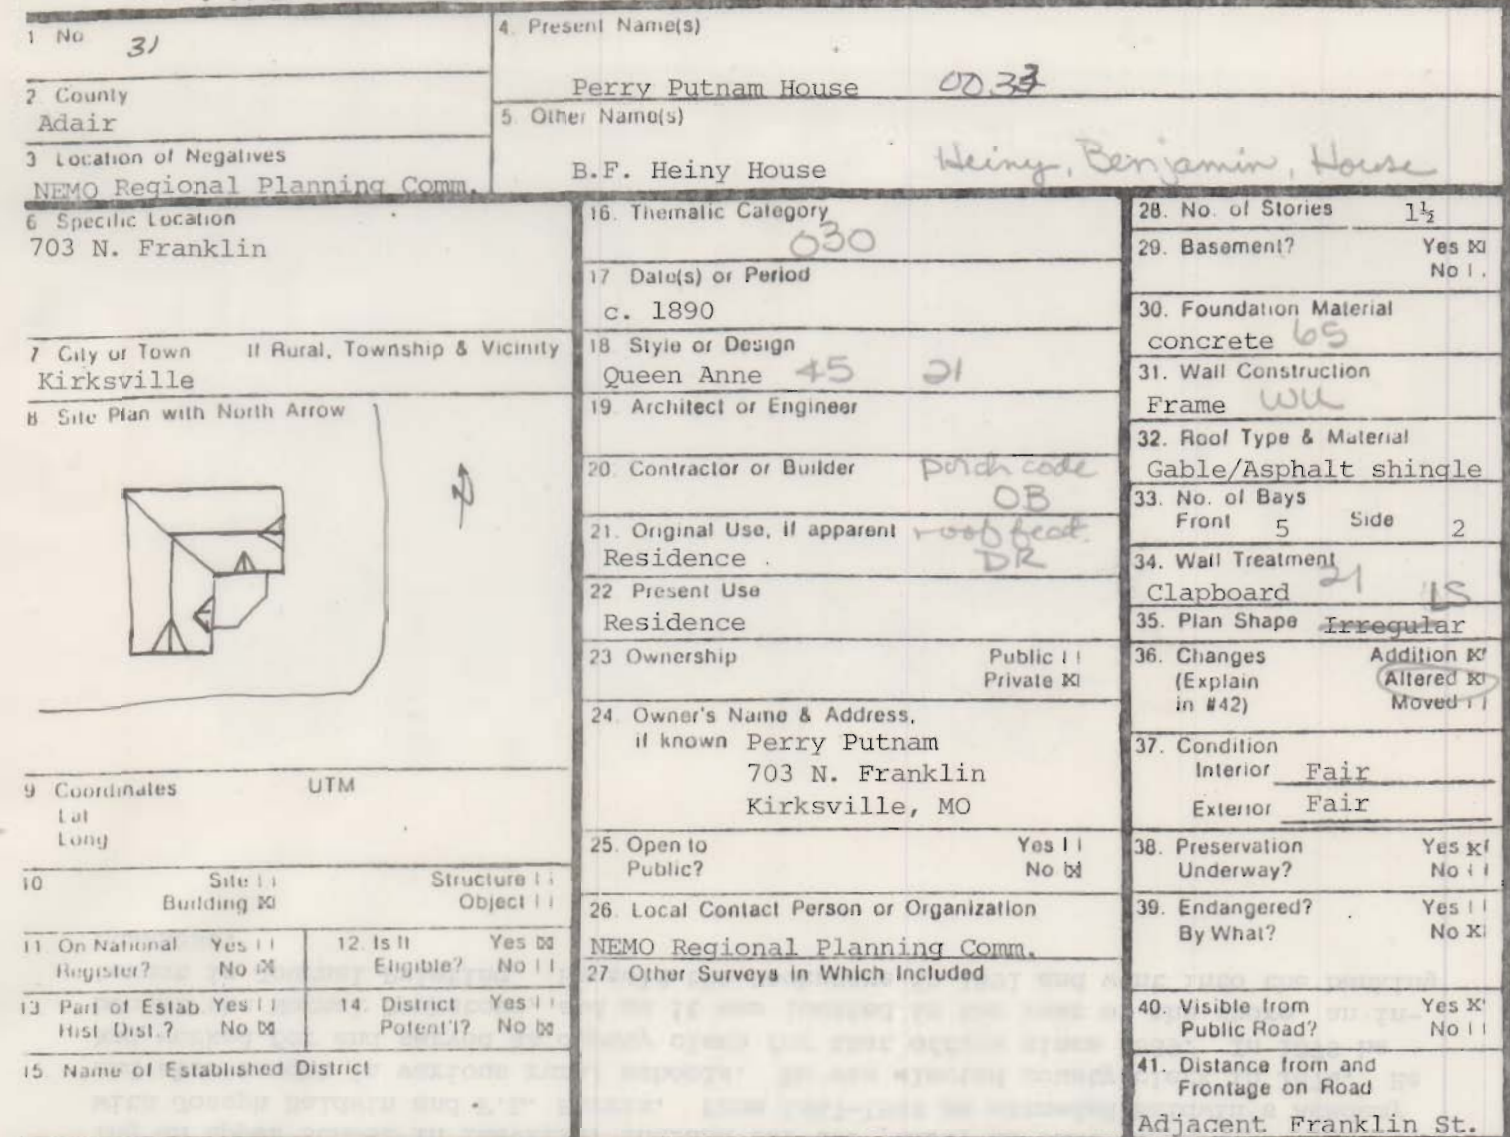 1 No 31
2 County
Adair
3 Location of Negatives
NEMO Regional Planning Comm.
4. Present Name(s)
Perry Putnam House
5. Other Name(s)
B.F. Heiny House Heiny, Benjamin, House
6 Specific Location
703 N. Franklin
7 City or Town If Rural, Township & Vicinity
Kirksville
8 Site Plan with North Arrow
9 Coordinates UTM
Lat
Long
10 Site Structure
Building [X] Object
11 On National Yes
Register? No [X]
12. Is It Yes [X]
Eligible? No
13 Part of Estab Yes
Hist. Dist.? No [X]
14. District Yes
Potent'l? No [X]
15 Name of Established District
16. Thematic Category
030
17 Date(s) or Period
c. 1890
18 Style or Design
Queen Anne 45 21
19 Architect or Engineer
20. Contractor or Builder porch code
OB
21. Original Use, if apparent roof feat.
Residence DR
22 Present Use
Residence
23 Ownership Public
Private [X]
24. Owner's Name & Address,
if known Perry Putnam
703 N. Franklin
Kirksville, MO
25. Open to Yes
Public? No [X]
26. Local Contact Person or Organization
NEMO Regional Planning Comm.
27. Other Surveys in Which Included
28. No. of Stories 1½
29. Basement? Yes [X]
No
30. Foundation Material
concrete 65
31. Wall Construction
Frame WU
32. Roof Type & Material
Gable/Asphalt shingle
33. No. of Bays
Front 5 Side 2
34. Wall Treatment
Clapboard 21
35. Plan Shape Irregular LS
36. Changes Addition [X]
(Explain Altered [X]
in #42) Moved
37. Condition
Interior Fair
Exterior Fair
38. Preservation Yes [X]
Underway? No
39. Endangered? Yes
By What? No [X]
40. Visible from Yes [X]
Public Road? No
41. Distance from and
Frontage on Road
Adjacent Franklin St.